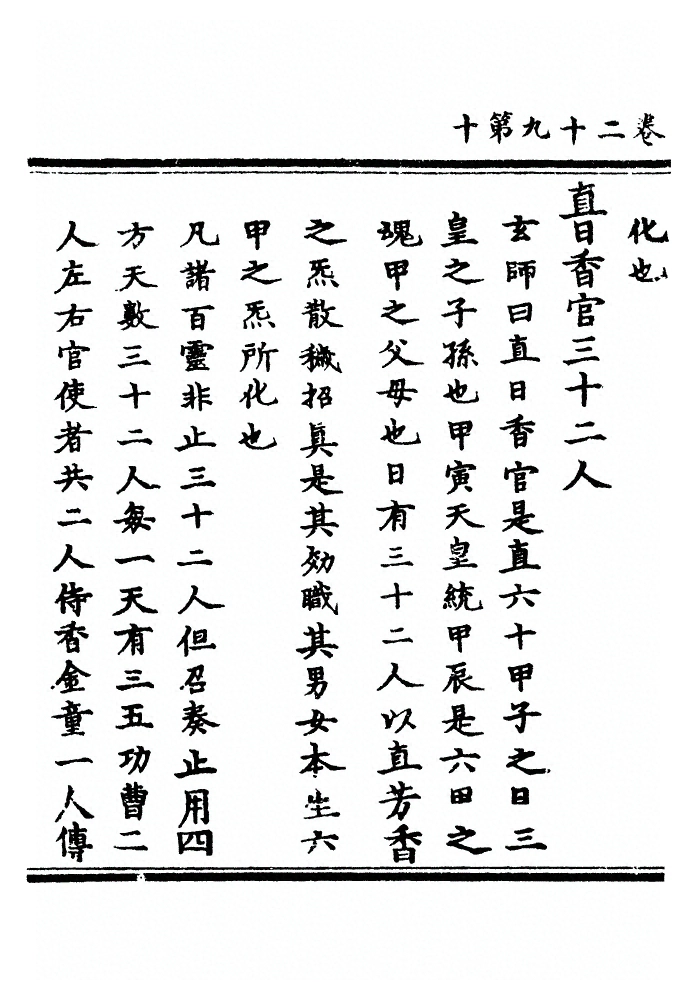 卷二十九第十
化也
直日香官三十二人
玄師曰直日香官是直六十甲子之日三
皇之子孫也甲寅天皇統甲辰是六甲之
魂甲之父母也日有三十二人以直芳香
之炁散穢招真是其効職其男女本生六
甲之炁所化也
凡諸百靈非止三十二人但召奏止用四
方天數三十二人每一天有三五功曹二
人左右官使者共二人侍香金童一人傳